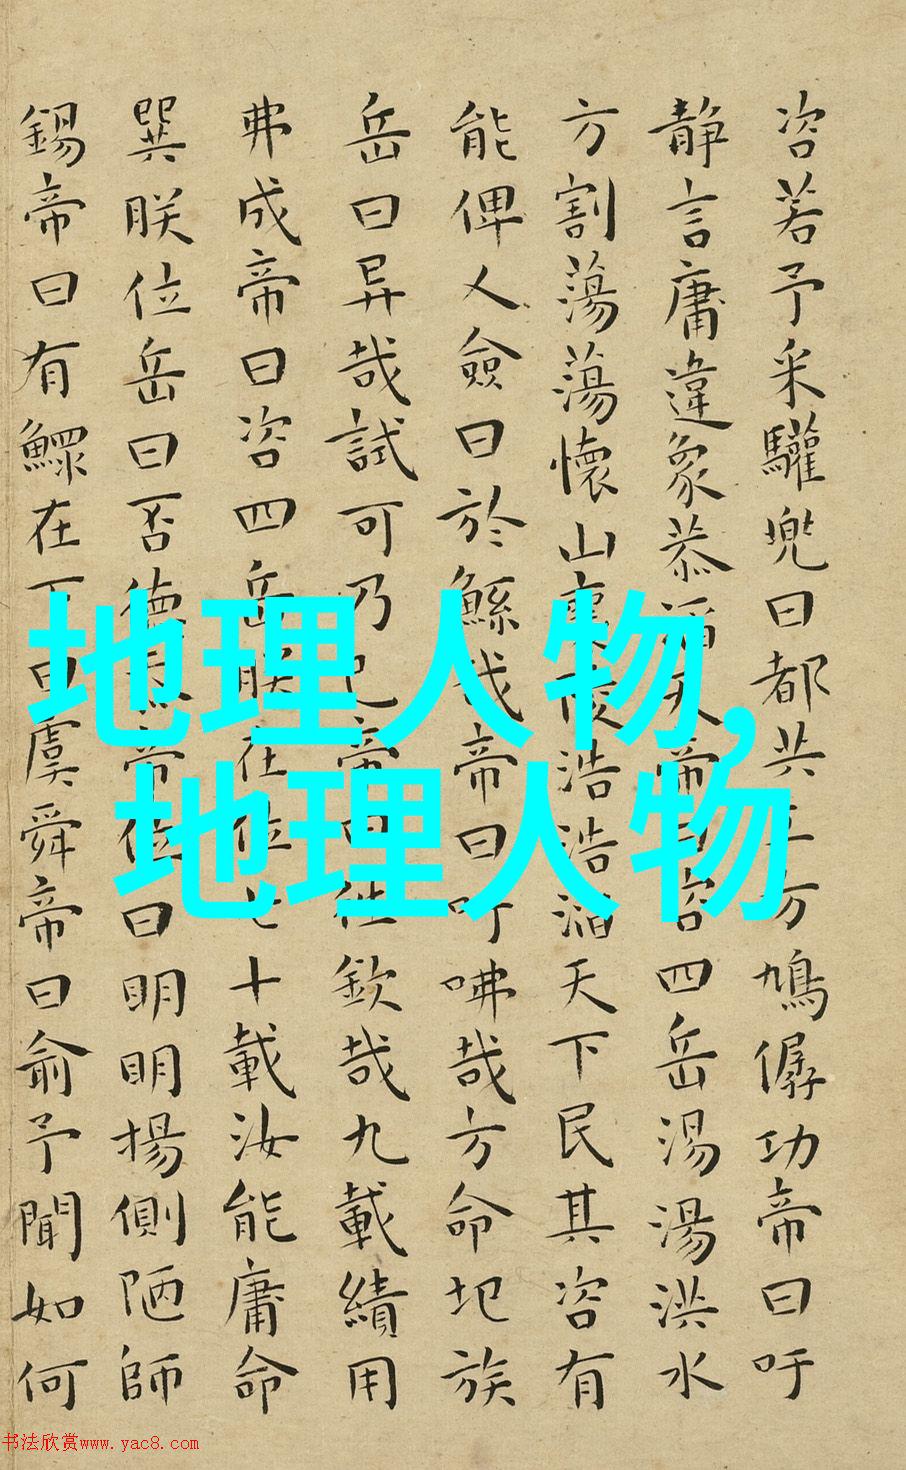 咨若予采驩兜曰都共工方鳩僝功帝曰吁
静言庸違象恭滔天帝曰咨四岳湯湯洪水
方割蕩蕩懷山襄陵浩浩滔天下民其咨有
能俾乂僉曰於鯀哉帝曰吁咈哉方命圮族
岳曰异哉試可乃已帝曰往欽哉九載績用
弗成帝曰咨四岳朕在位七十載汝能庸命
巽朕位岳曰否德忝帝位曰明明揚側陋師
錫帝曰有鰥在下曰虞舜帝曰俞予聞如何
地理人物,
地理人物
书法欣赏www.yac8.com